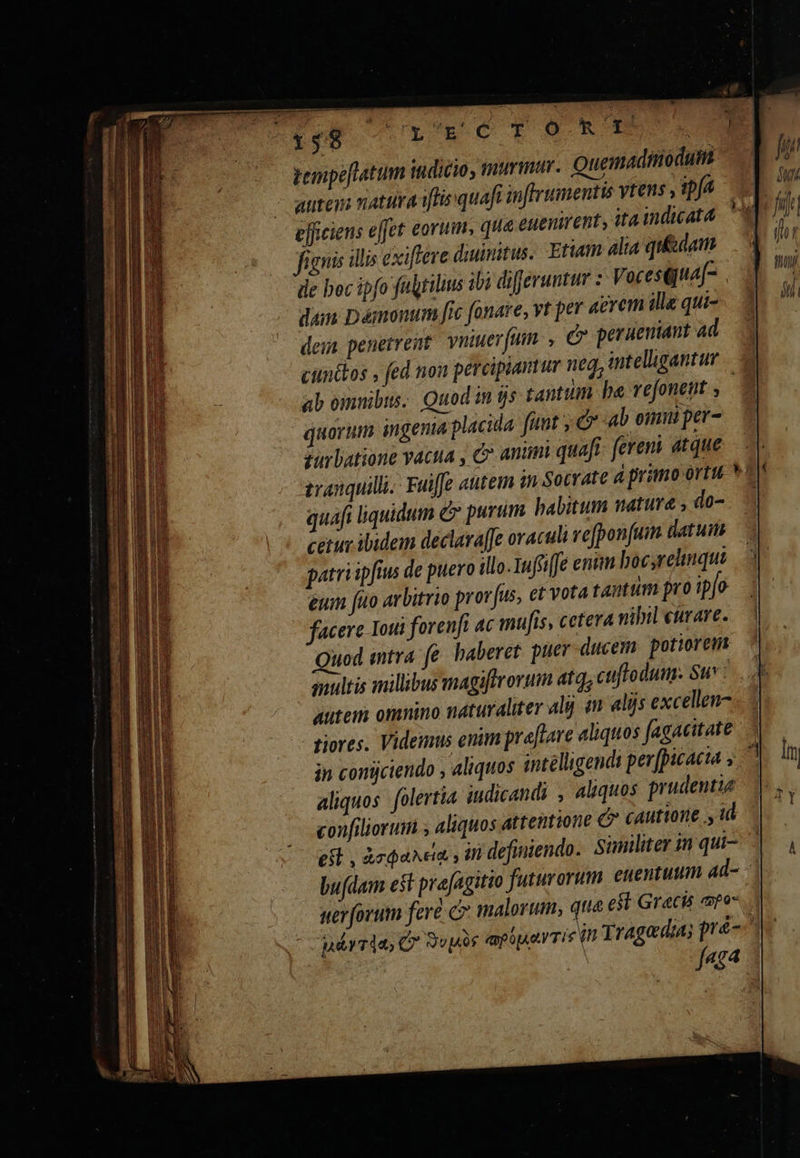 158 LECTORI
tempeſtatum iudicio, murmur. Quemadmodum
autem natura iſtis quaſi inſtrumentis vtens, ipſa
efficiens eſſet eorum, quæ euenirent, ita indicata
ſignis illis exiſtere diuinitus. Etiam alia quædam
de hoc ipſo ſubtilius ibi diſſeruntur: Voces quaſ-
dam Dæmonum ſic ſonare, vt per aërem illæ qui-
dem penetrent vniuerſum, & perueniant ad
cunctos, ſed non percipiantur neq; intelligantur
ab omnibus. Quod in ijs tantum hæ reſonent,
quorum ingenia placida ſunt, & ab omni per-
turbatione vacua, & animi quaſi ſereni atque
tranquilli. Fuiſſe autem in Socrate à primo ortu
quaſi liquidum & purum habitum naturæ, do-
cetur ibidem declaraſſe oraculi reſponſum datum
patri ipſius de puero illo. Iuſsiſſe enim hoc, relinqui
eum ſuo arbitrio prorſus, et vota tantùm pro ipſo
facere Ioui forenſi ac muſis, cetera nihil curare.
Quod intra ſe haberet puer ducem potiorem
multis millibus magiſtrorum atq; cuſtodum. Su
autem omnino naturaliter alij in alijs excellen-
tiores. Videmus enim præſtare aliquos ſagacitate
in conijciendo, aliquos intelligendi perſpicacia,
aliquos ſolertia iudicandi, aliquos prudentia
conſiliorum, aliquos attentione & cautione, id
eſt, ἀσφαλεία, in definiendo. Similiter in qui-
buſdam eſt præſagitio futurorum euentuum ad-
uerſorum ferè & malorum, quæ eſt Græcis προ-
μάντια, & θυμὸς πρόμαντις in Tragœdia, præ-
ſaga